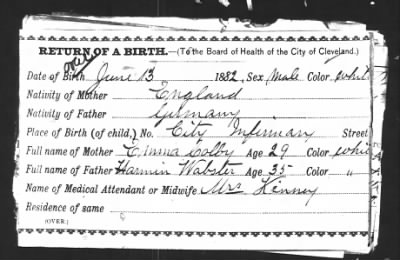 RETURN OF A BIRTH.—(To the Board of Health of the City of Cleveland.)
Date of Birth June 13 1882, Sex Male Color white
Nativity of Mother England
Nativity of Father Germany
Place of Birth (of child.) No. City Infirmary Street
Full name of Mother Emma Colby Age 29 Color white
Full name of Father Harmin Wabster Age 35 Color "
Name of Medical Attendant or Midwife Mrs Kenney
Residence of same
(OVER.)